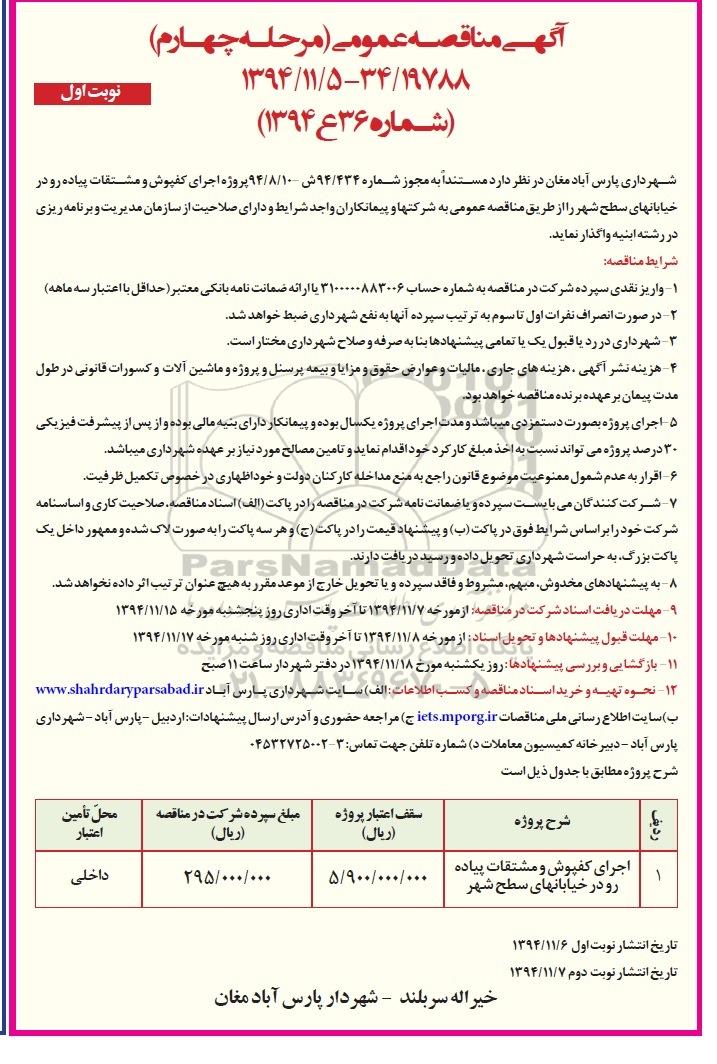 آگهی مناقصه عمومی (مرحله چهارم)
۱۳۹۴/۱۱/۵-۳۴/۱۹۷۸۸
(شماره ۳۶ع۱۳۹۴)
نوبت اول
شهرداری پارس آباد مغان در نظر دارد مستنداً به مجوز شماره ۹۴/۴۳۴ش-۹۴/۸/۱۰ پروژه اجرای کفپوش و مشتقات پیاده رو در
خیابانهای سطح شهر را از طریق مناقصه عمومی به شرکتها و پیمانکاران واجد شرایط و دارای صلاحیت از سازمان مدیریت و برنامه ریزی
در رشته ابنیه واگذار نماید.
شرایط مناقصه:
۱- واریز نقدی سپرده شرکت در مناقصه به شماره حساب ۳۱۰۰۰۰۰۸۸۳۰۰۶ یا ارائه ضمانت نامه بانکی معتبر (حداقل با اعتبار سه ماهه)
۲- در صورت انصراف نفرات اول تا سوم به ترتیب سپرده آنها به نفع شهرداری ضبط خواهد شد.
۳- شهرداری در رد یا قبول یک یا تمامی پیشنهادها بنا به صرفه و صلاح شهرداری مختار است.
۴- هزینه نشر آگهی ، هزینه های جاری ، مالیات و عوارض حقوق و مزایا و بیمه پرسنل و پروژه و ماشین آلات و کسورات قانونی در طول
مدت پیمان بر عهده برنده مناقصه خواهد بود.
۵- اجرای پروژه بصورت دستمزدی میباشد و مدت اجرای پروژه یکسال بوده و پیمانکار دارای بنیه مالی بوده و از پس از پیشرفت فیزیکی
۳۰ درصد پروژه می تواند نسبت به اخذ مبلغ کارکرد خود اقدام نماید و تامین مصالح مورد نیاز بر عهده شهرداری میباشد.
۶- اقرار به عدم شمول ممنوعیت موضوع قانون راجع به منع مداخله کارکنان دولت و خوداظهاری در خصوص تکمیل ظرفیت.
۷- شرکت کنندگان می بایست سپرده و یا ضمانت نامه شرکت در مناقصه را در پاکت (الف) اسناد مناقصه، صلاحیت کاری و اساسنامه
شرکت خود را بر اساس شرایط فوق در پاکت (ب) و پیشنهاد قیمت را در پاکت (ج) و هر سه پاکت را به صورت لاک شده و ممهور داخل یک
پاکت بزرگ، به حراست شهرداری تحویل داده و رسید دریافت دارند.
۸- به پیشنهادهای مخدوش، مبهم، مشروط و فاقد سپرده و یا تحویل خارج از موعد مقرر به هیچ عنوان ترتیب اثر داده نخواهد شد.
۹- مهلت دریافت اسناد شرکت در مناقصه: از مورخه ۱۳۹۴/۱۱/۷ تا آخر وقت اداری روز پنجشنبه مورخه ۱۳۹۴/۱۱/۱۵
۱۰- مهلت قبول پیشنهادها و تحویل اسناد: از مورخه ۱۳۹۴/۱۱/۸ تا آخر وقت اداری روز شنبه مورخه ۱۳۹۴/۱۱/۱۷
۱۱- بازگشایی و بررسی پیشنهادها: روز یکشنبه مورخ ۱۳۹۴/۱۱/۱۸ در دفتر شهردار ساعت ۱۱ صبح
۱۲- نحوه تهیه و خرید اسناد مناقصه و کسب اطلاعات: الف) سایت شهرداری پارس آباد www.shahrdaryparsabad.ir
ب) سایت اطلاع رسانی ملی مناقصات iets.mporg.ir ج) مراجعه حضوری و آدرس ارسال پیشنهادات: اردبیل - پارس آباد - شهرداری
پارس آباد - دبیرخانه کمیسیون معاملات د) شماره تلفن جهت تماس: ۳-۰۴۵۳۲۷۲۵۰۰۲
شرح پروژه مطابق با جدول ذیل است
ردیف شرح پروژه سقف اعتبار پروژه (ریال) مبلغ سپرده شرکت در مناقصه (ریال) محلّ تأمین اعتبار
۱ اجرای کفپوش و مشتقات پیاده رو در خیابانهای سطح شهر ۵/۹۰۰/۰۰۰/۰۰۰ ۲۹۵/۰۰۰/۰۰۰ داخلی
تاریخ انتشار نوبت اول ۱۳۹۴/۱۱/۶
تاریخ انتشار نوبت دوم ۱۳۹۴/۱۱/۷
خیراله سربلند - شهردار پارس آباد مغان
ParsNamadData
پایگاه اطلاع رسانی مناقصه و مزایده
۰۲۱-۸۸۳۴۹۶۷۰-۵